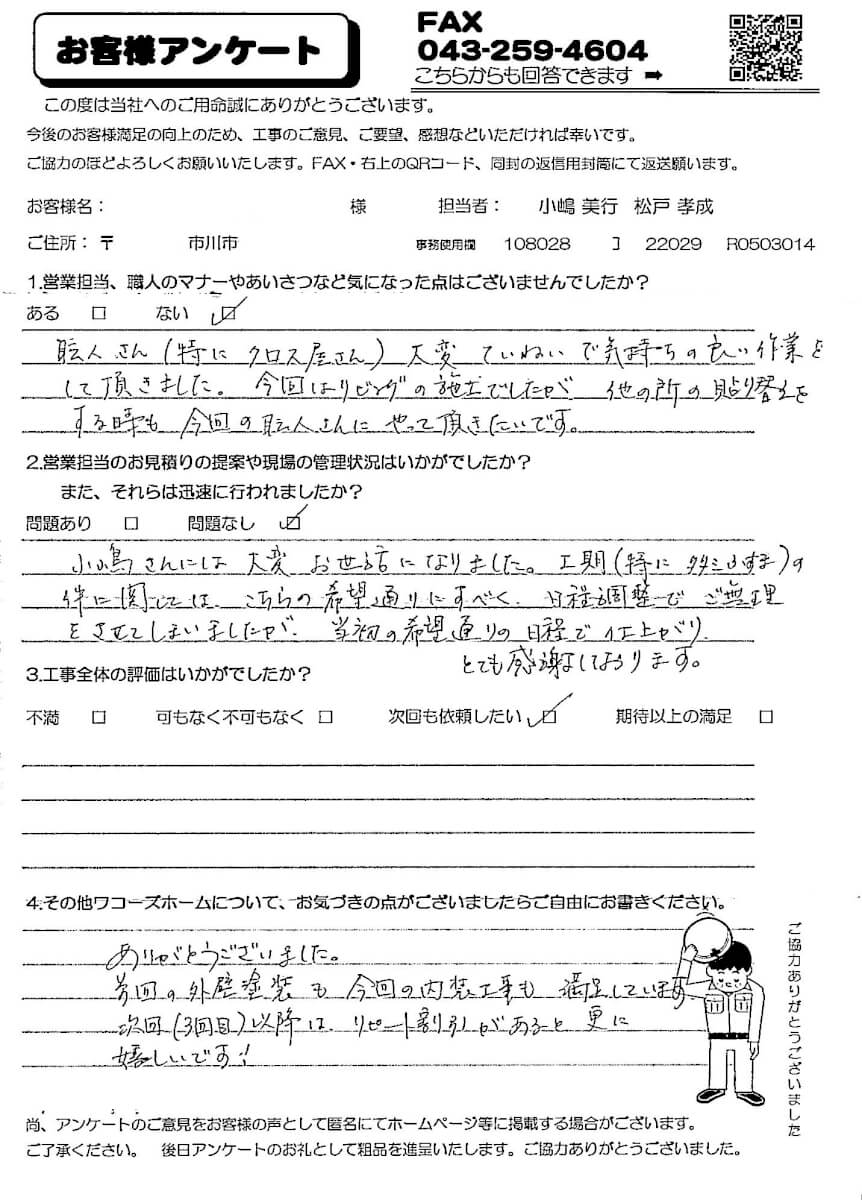 お客様アンケート
FAX
043-259-4604
こちらからも回答できます ➡
この度は当社へのご用命誠にありがとうございます。
今後のお客様満足の向上のため、工事のご意見、ご要望、感想などいただければ幸いです。
ご協力のほどよろしくお願いいたします。FAX・右上のQRコード、同封の返信用封筒にて返送願います。
お客様名： 様 担当者： 小嶋 美行 松戸 孝成
ご住所：〒 市川市 事務使用欄 108028 コ 22029 R0503014
1.営業担当、職人のマナーやあいさつなど気になった点はございませんでしたか？
ある □ ない ☑
職人さん(特にクロス屋さん)大変ていねいで気持ちの良い作業を
して頂きました。今回はリビングの施工でしたが 他の所の貼り替えを
する時も今回の職人さんにやって頂きたいです。
2.営業担当のお見積りの提案や現場の管理状況はいかがでしたか？
また、それらは迅速に行われましたか？
問題あり □ 問題なし ☑
小嶋さんには大変お世話になりました。工期(特にタタミ・ふすま)の
件に関しては、こちらの希望通りにすべく、日程調整でご無理
をさせてしまいましたが、当初の希望通りの日程で仕上がり、
とても感謝しております。
3.工事全体の評価はいかがでしたか？
不満 □ 可もなく不可もなく □ 次回も依頼したい ☑ 期待以上の満足 □
4.その他ワコーズホームについて、お気づきの点がございましたらご自由にお書きください。
ありがとうございました。
前回の外壁塗装も今回の内装工事も満足しています
次回(3回目)以降は、リピート割引があると更に
嬉しいです！
ご協力ありがとうございました
尚、アンケートのご意見をお客様の声として匿名にてホームページ等に掲載する場合がございます。
ご了承ください。 後日アンケートのお礼として粗品を進呈いたします。ご協力ありがとうございました。